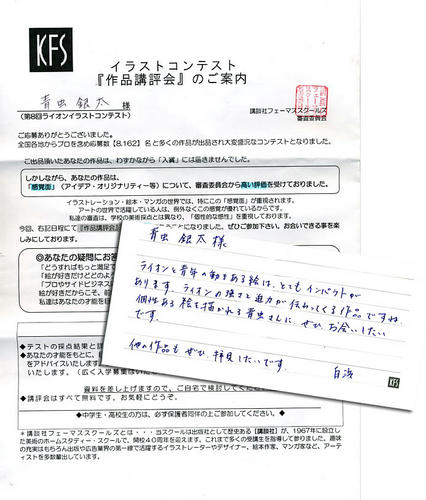 KFS
イラストコンテスト
『作品講評会』のご案内
青虫 銀太 様
(第8回ライオンイラストコンテスト)
講談社フェーマススクールズ
審査委員会
ご応募ありがとうございました。
全国各地からプロを含め応募数【8,162】名と多くの作品が出品され大変盛況なコンテストとなりました。
ご出品頂いたあなたの作品は、わずかながら「入選」には届きませんでした。
しかしながら、あなたの作品は、
「感覚面」(アイデア・オリジナリティー等)について、審査委員会から高い評価を受けておりました。
イラストレーション・絵本・マンガの世界では、特にこの「感覚面」が重視されます。
アートの世界で活躍している人は、例外なくこの感覚が優れているからです。
私達の審査は、学校の美術採点とは異なり、「個性的な感性」を重視しております。
今回、右記日程にて『作品講評会
なりました。ぜひご参加下さい。お会いできる事を楽
しみにしております。
◎あなたの疑問にお答
「どうすればもっと満足で
「絵が好きだけどどの
「プロやサイドビジネス
絵が好きだからこそ、
私達はあなたの才能を
青虫 銀太 様
ライオンと青年の動きある絵は、とてもインパクトが
あります。ライオンの強さと迫力が伝わってくる作品ですね。
個性ある絵を描かれる青虫さんに、ぜひ、お会いしたい
です。
他の作品もぜひ、拝見したいです。
KFS
◆テストの採点結果と詳
◆あなたの才能をもとに、
をアドバイスいたします
いたします。(広く入学募集は
資料を差し上げますので、ご自宅で検討してくだ
◆講評会はすべて無料です。お気軽にどうぞ。
◆中学生・高校生の方は、必ず保護者同伴の上ご参加してください。◆
＊講談社フェーマススクールズとは・・・当スクールは出版社として歴史ある【講談社】が、1967年に設立し
た美術のホームスタディー・スクールで、開校40周年を迎えます。これまで多くの受講生を指導して参りました。趣味
の充実はもちろん出版や広告業界の第一線で活躍するイラストレーターやデザイナー、絵本作家、マンガ家など、アー
ティストを多数輩出しています。